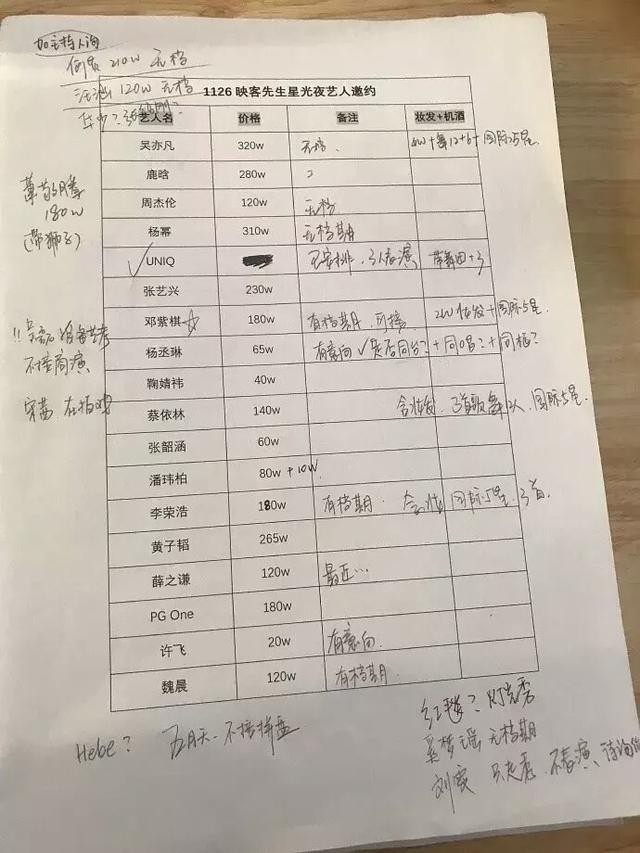 加主档人询
何炅 210w 无档
汪涵 120w 无档
1126 映客先生星光夜艺人邀约
华少?
艺人名 价格 备注 妆发+机酒
吴亦凡 320w 无档. 4w+舞12+6+国际5星.
鹿晗 280w
周杰伦 120w 无档
杨幂 310w 无档期
UNIQ 无安排. 3人表演 带舞团+3
张艺兴 230w
邓紫棋☆ 180w 有档期. 可接 2w妆发+国际5星.
杨丞琳 65w 有意向✓是否同台?+同唱?+同框?
鞠婧祎 40w
蔡依林 140w 含妆发. 3首歌舞 人.国际5星.
张韶涵 60w
潘玮柏 80w + 10w
李荣浩 180w 有档期. 含妆 国际5星. 3首
黄子韬 265w
薛之谦 120w 最近…
PG One 180w
许飞 20w 有意向
魏晨 120w 有档期
180w
(带狮子)
!! 吴磊 准备艺考
不接商演
宋茜 在拍戏
Hebe? 五月天-不接拼盘
红毯? 灯光秀
奚梦瑶 无档期
刘雯 只走秀.不表演.待询价